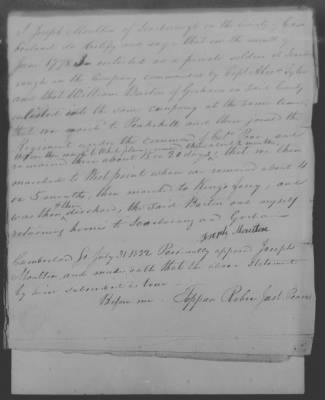 I Joseph Moulton of Scarborough in the County of Cum
berland do certify and say that on the month of
June 1778 I enlisted as a private soldier in Scarbo
rough in the Company commanded by Capt Abm Tyler
and that William Burton of Gorham in said County
enlisted into the same company at the same time,
that we march to Peekskill and there joined the
Regiment under the command of Col. Poor, and
remained there about 15 or 20 days, that we then
marched to West point where we remained about 4
or 5 months, then marched to King's ferry, and
was then dischard, the said Burton and myself
returning home to Scarborough and Gorham
Joseph Moulton
Cumberland Ss July 31 1832 Personally appeard Joseph
Moulton and made oath that the above Statement
by him subscribed is true
Before me Toppan Robie Just. Peace